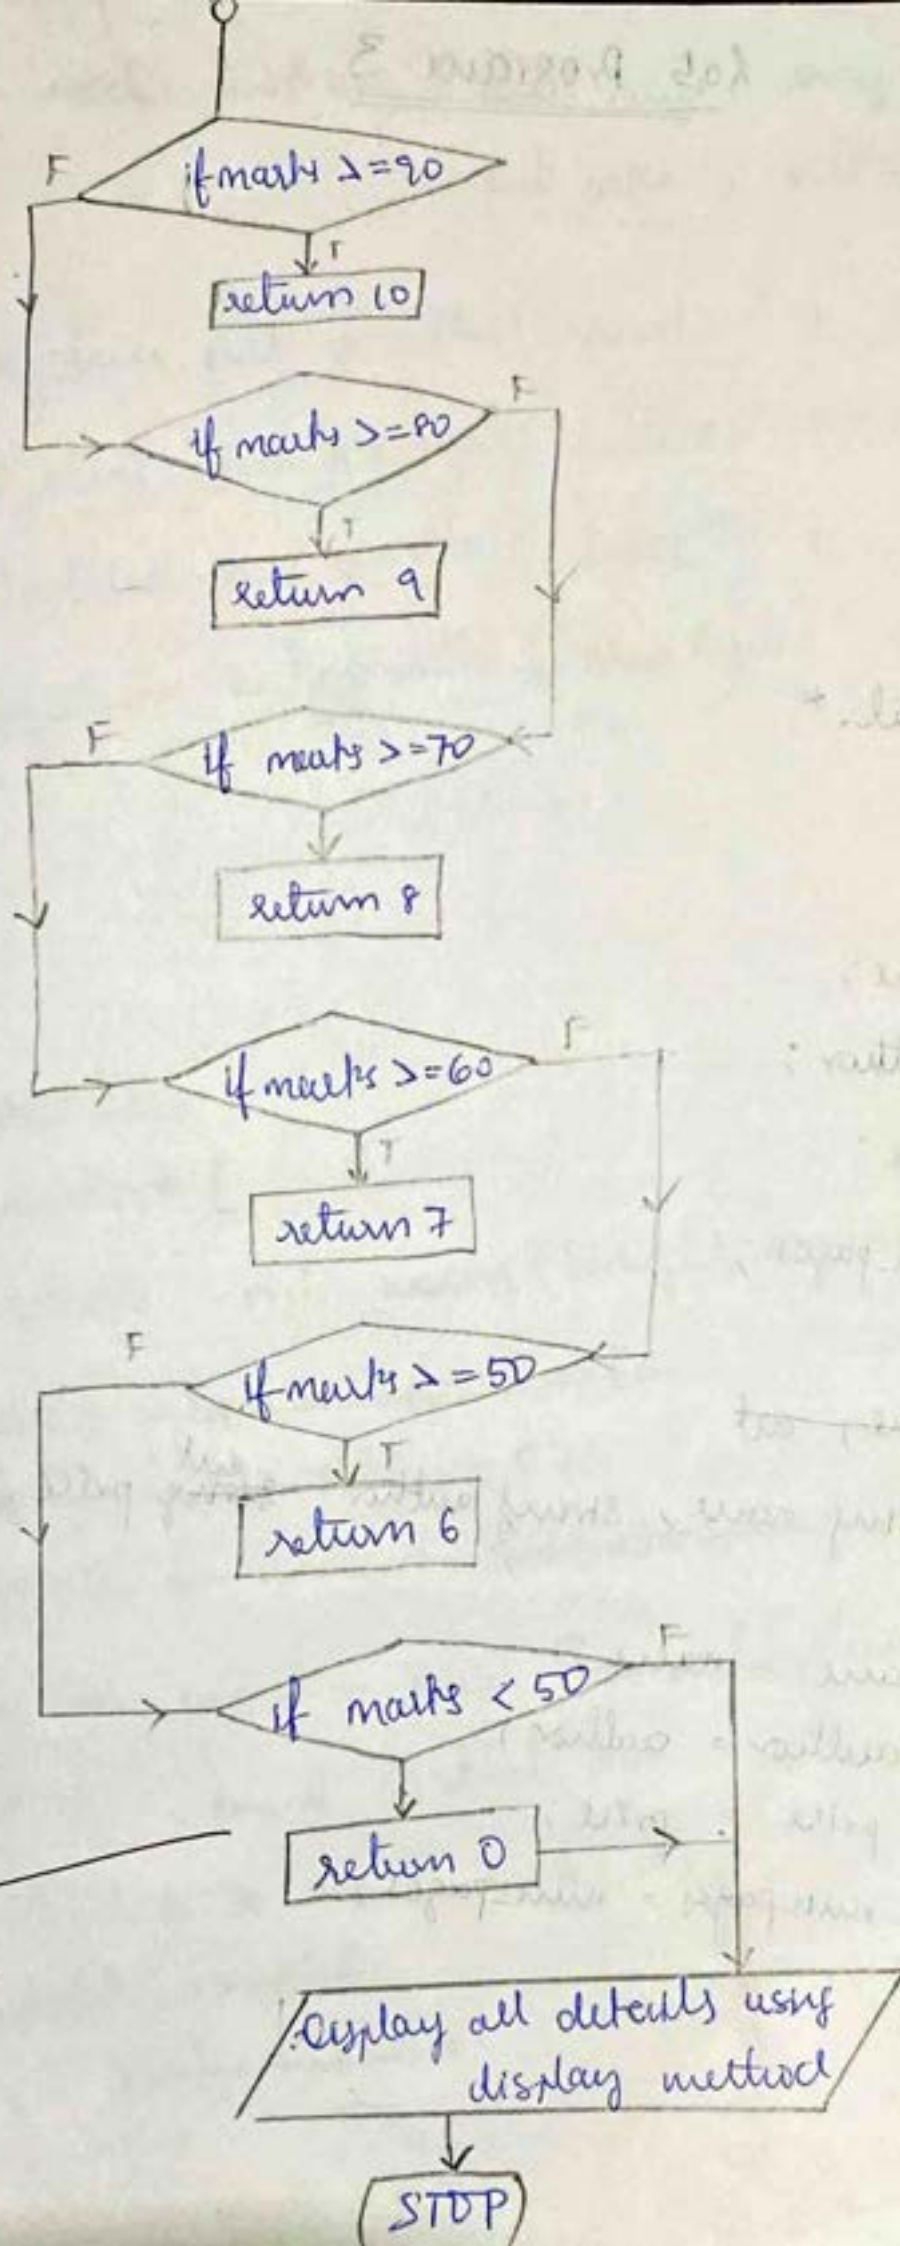 F
if marks >=90
T
return 10
F
if marks >=80
T
return 9
F
if marks >=70
return 8
F
if marks >=60
T
return 7
F
if marks >=50
T
return 6
F
if marks < 50
return 0
Display all details using
display method
STOP